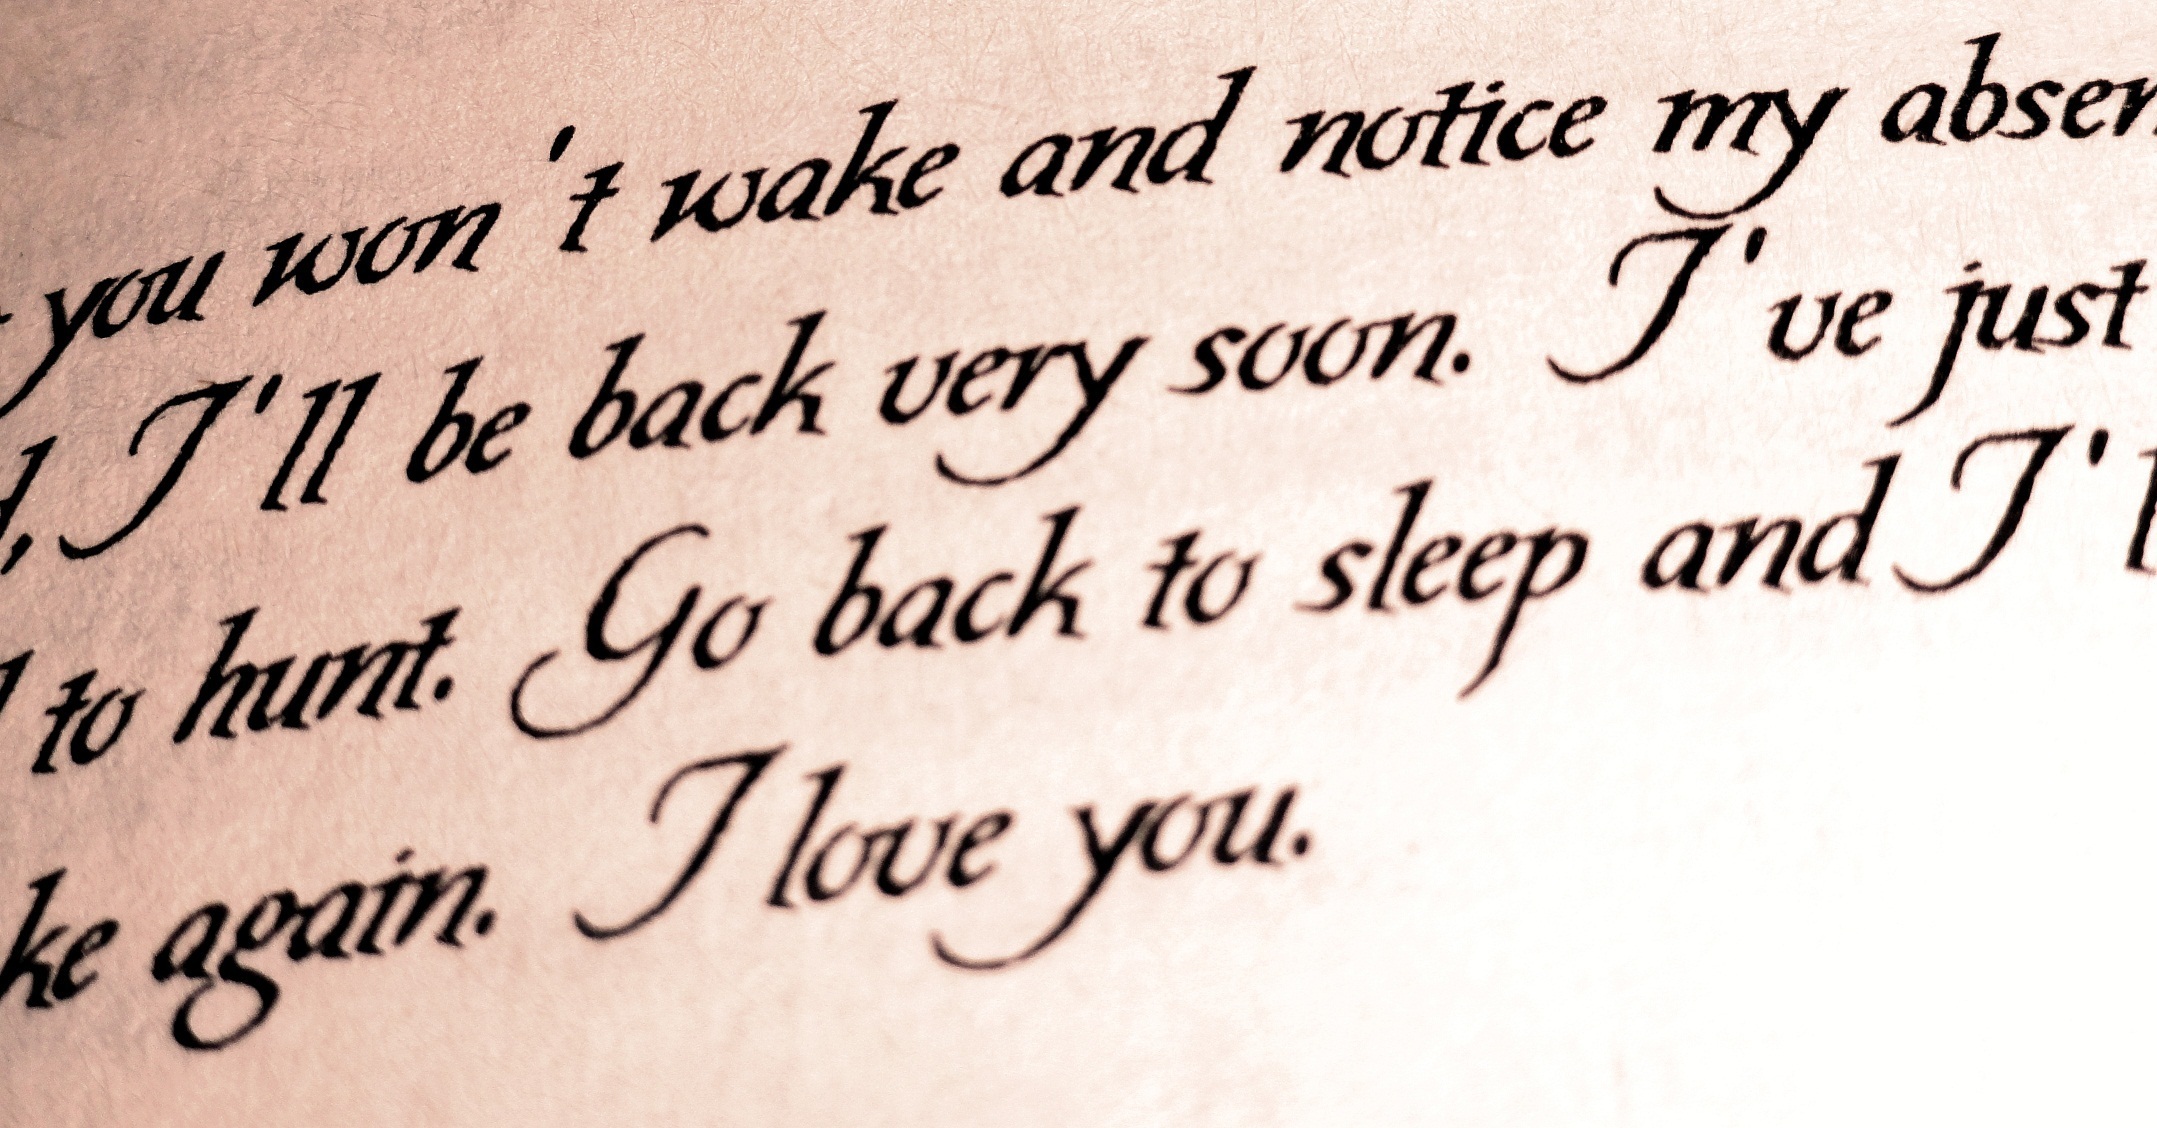 you won't wake and notice my absen
d, I'll be back very soon. I've just
to hunt. Go back to sleep and I'l
ke again. I love you.